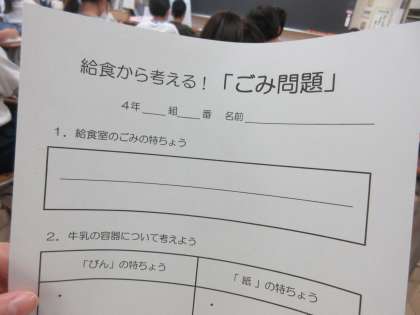 給食から考える！「ごみ問題」
4年＿＿組＿＿番 名前＿＿＿＿＿＿＿＿
1．給食室のごみの特ちょう
2．牛乳の容器について考えよう
「びん」の特ちょう 「紙」の特ちょう
・ ・